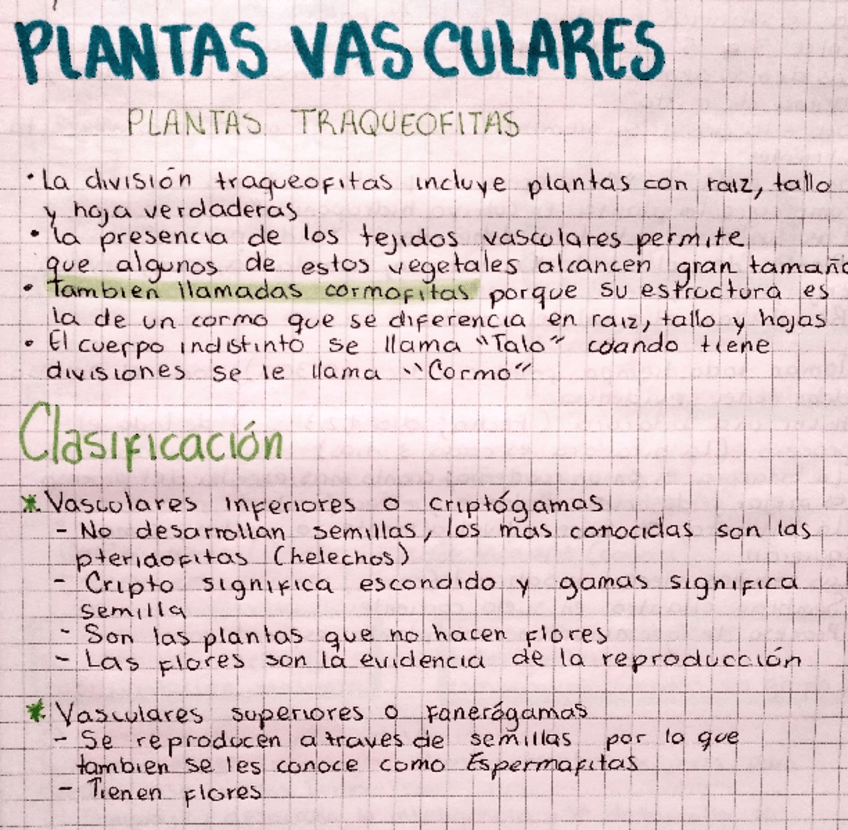 PLANTAS VASCULARES
PLANTAS TRAQUEOFITAS
• La división traqueofitas incluye plantas con raiz, tallo
y hoja verdaderas
• la presencia de los tejidos vasculares permite
que algunos de estos vegetales alcancen gran tamaño
• Tambien llamadas cormofitas porque su estructura es
la de un cormo que se diferencia en raiz, tallo y hojas
• El cuerpo indistinto se llama "Talo" cuando tiene
divisiones se le llama "Cormo"
Clasificación
* Vasculares inferiores o criptógamas
- No desarrollan semillas, los más conocidas son las
pteridofitas (helechos)
- Cripto significa escondido y gamas significa
semilla
- Son las plantas que no hacen flores
- Las flores son la evidencia de la reproducción
* Vasculares superiores o Fanerógamas
- Se reproducen a traves de semillas por lo que
tambien se les conoce como Espermafitas
- Tienen flores